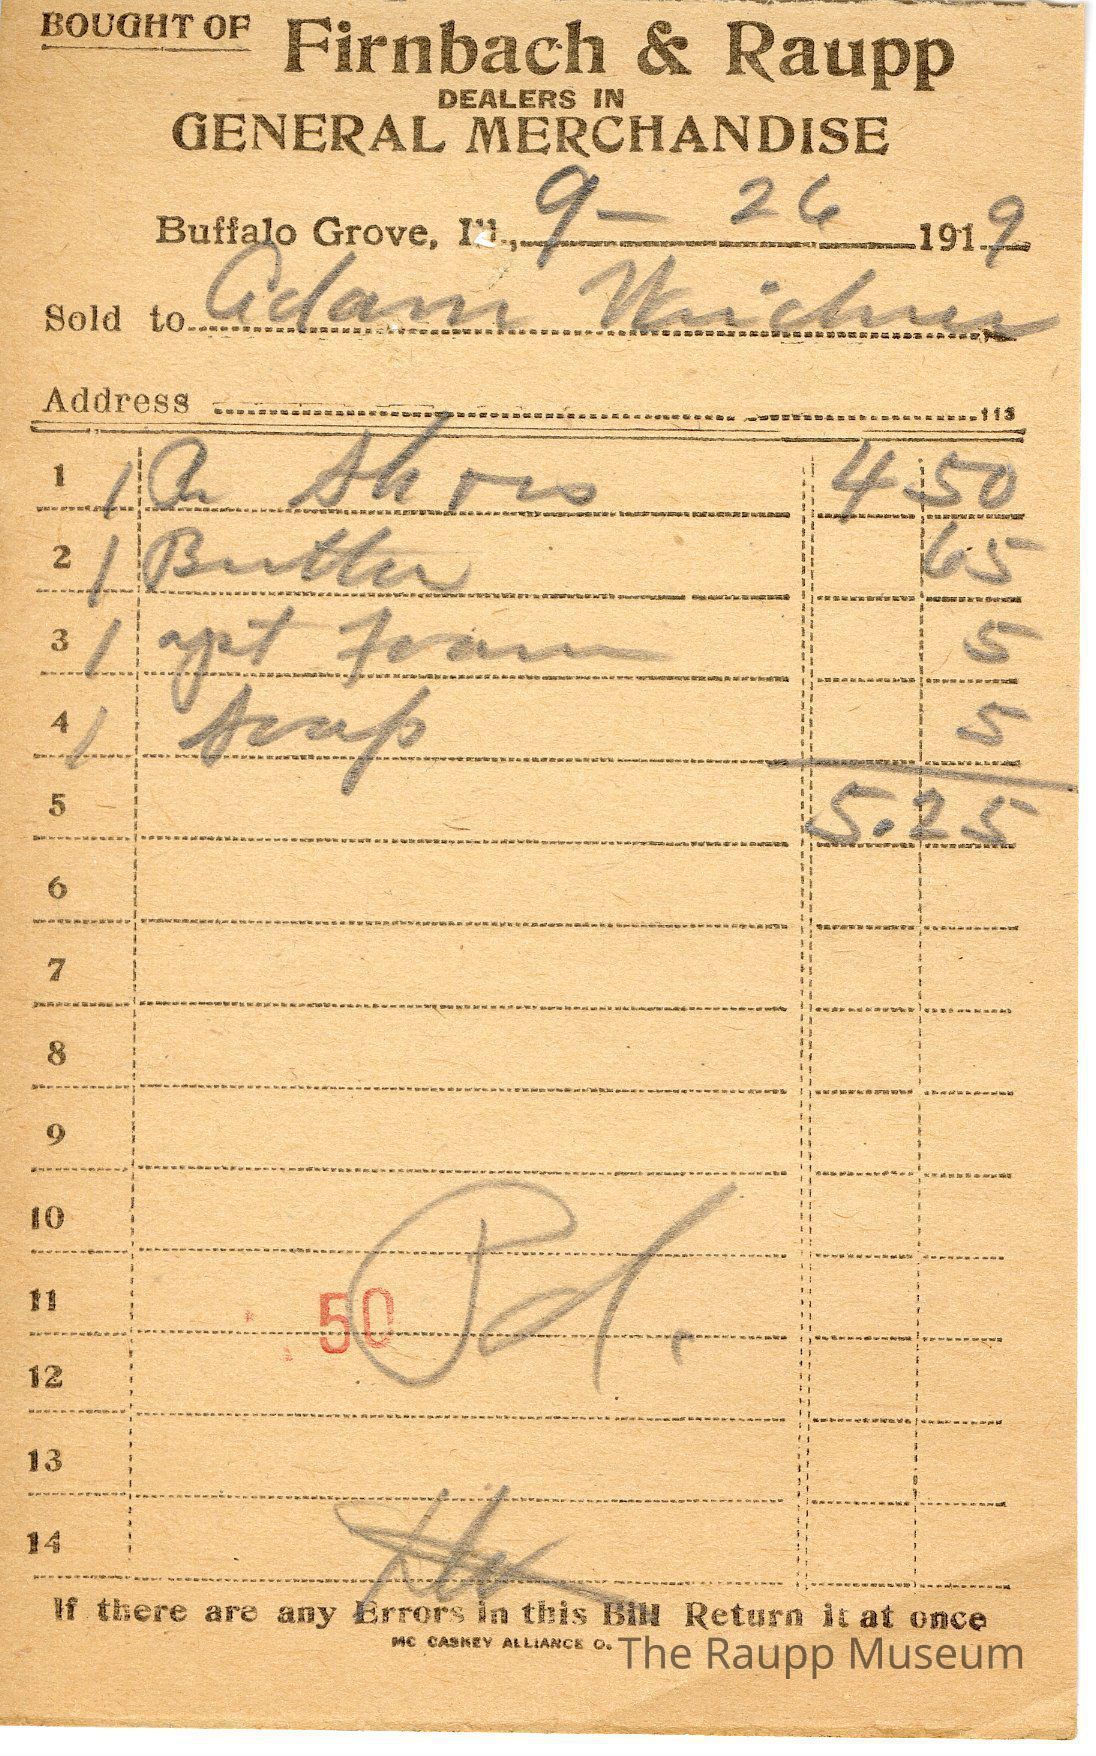 BOUGHT OF Firnbach & Raupp
DEALERS IN
GENERAL MERCHANDISE
Buffalo Grove, Ill., 9 - 26 1919
Sold to Adam
Address 113
1 1 Pr Shoes 4 50
2 1 Butter 65
3 1 Foam 5
4 1 Soap 5
5 5.25
6
7
8
9
10
Pd.
11 50
12
13
14
If there are any Errors in this Bill Return it at once
MC CASKEY ALLIANCE O.
The Raupp Museum